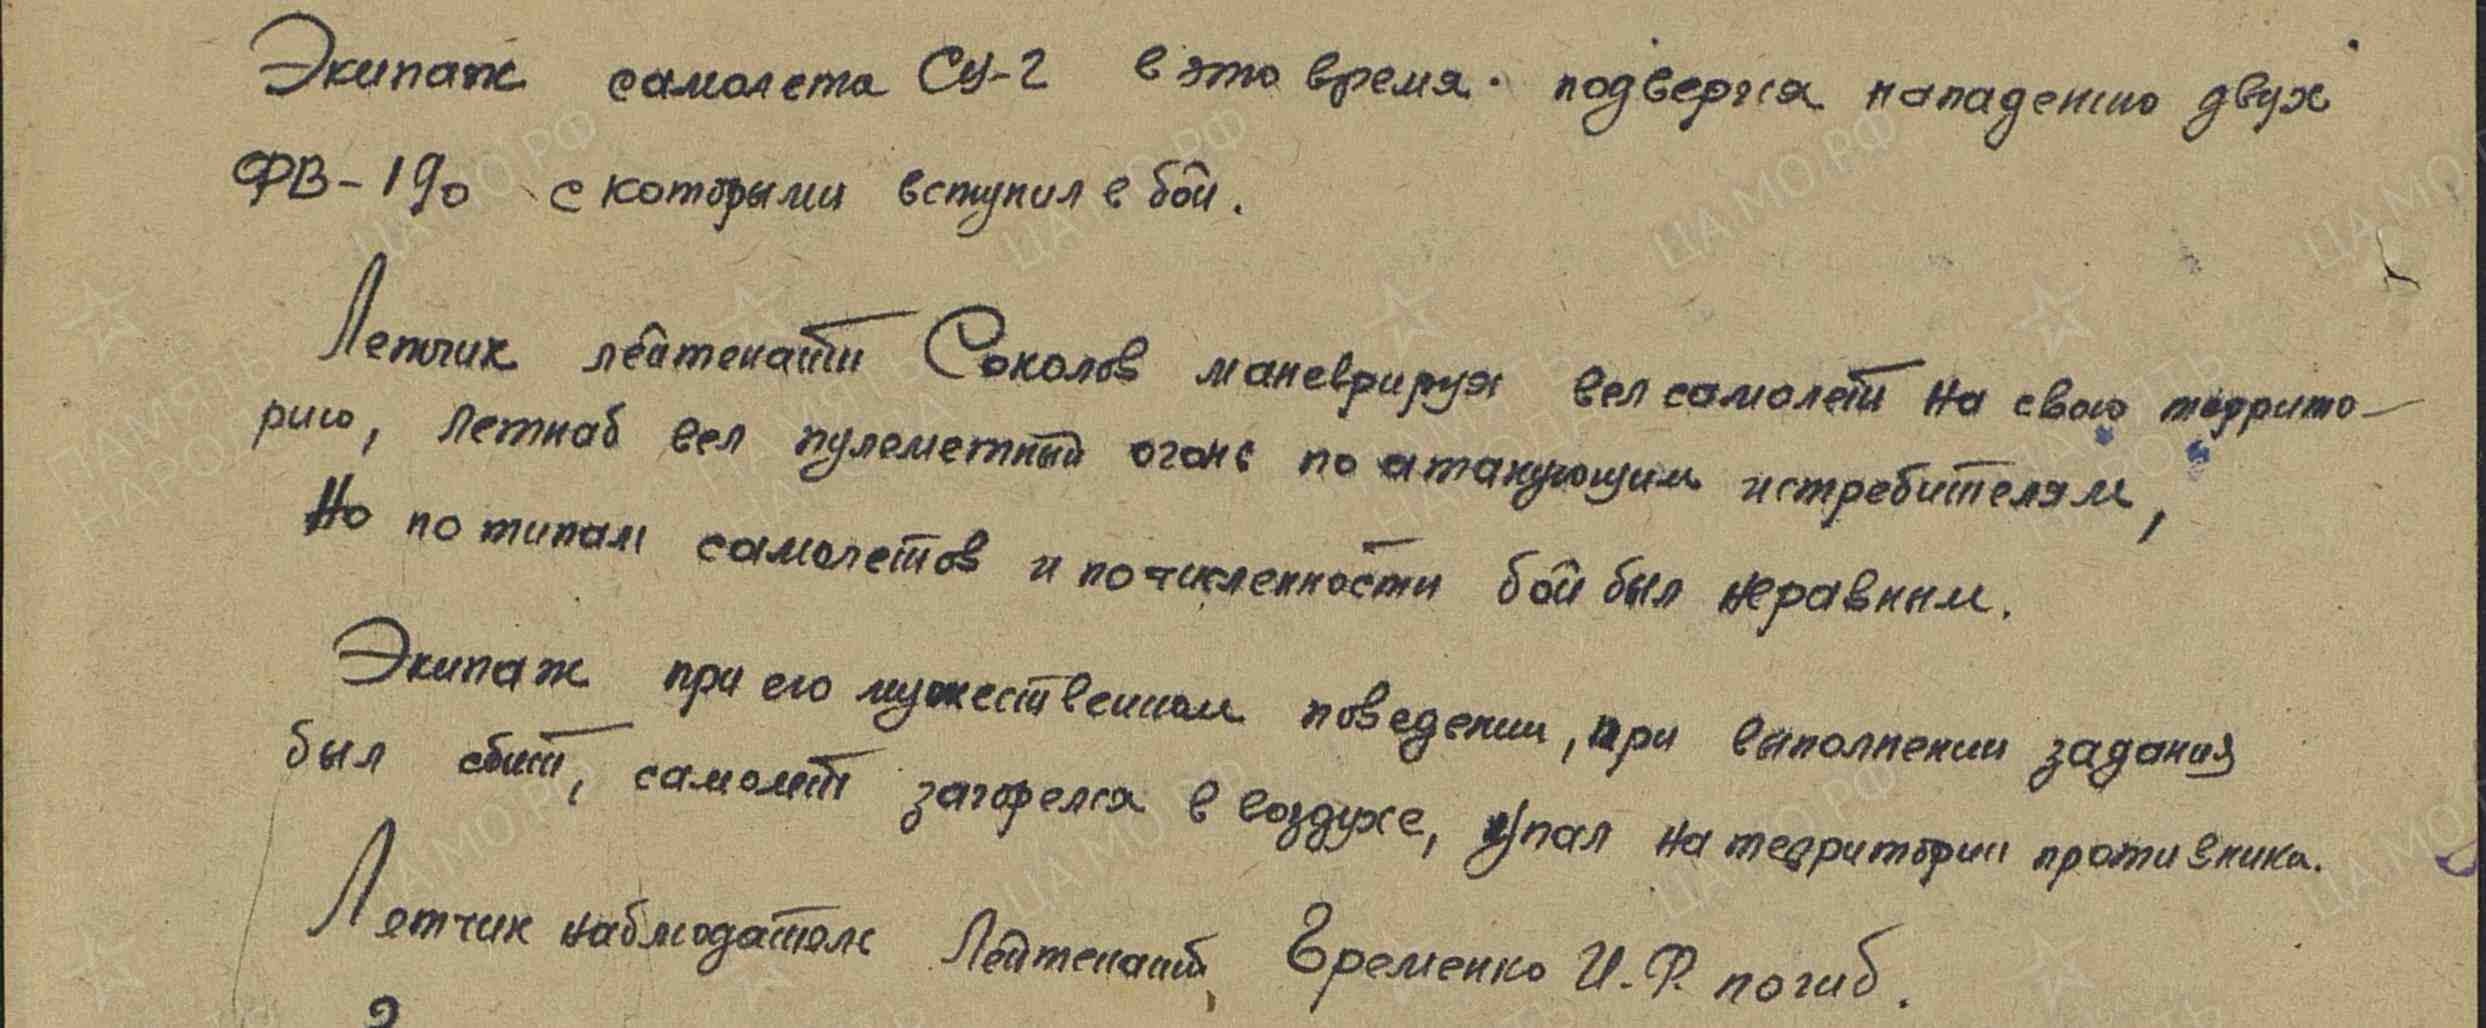 Экипаж самолета Су-2 в это время подвергся нападению двух
ФВ-190 с которыми вступил в бой.
Летчик лейтенант Соколов маневрируя вел самолет на свою террито-
рию, летнаб вел пулеметный огонь по атакующим истребителям,
Но по типам самолетов и по численности бой был неравным.
Экипаж при его мужественном поведении, при выполнении задания
был сбит, самолет загорелся в воздухе, упал на территории противника.
Летчик наблюдатель Лейтенант Еременко И.Ф. погиб.